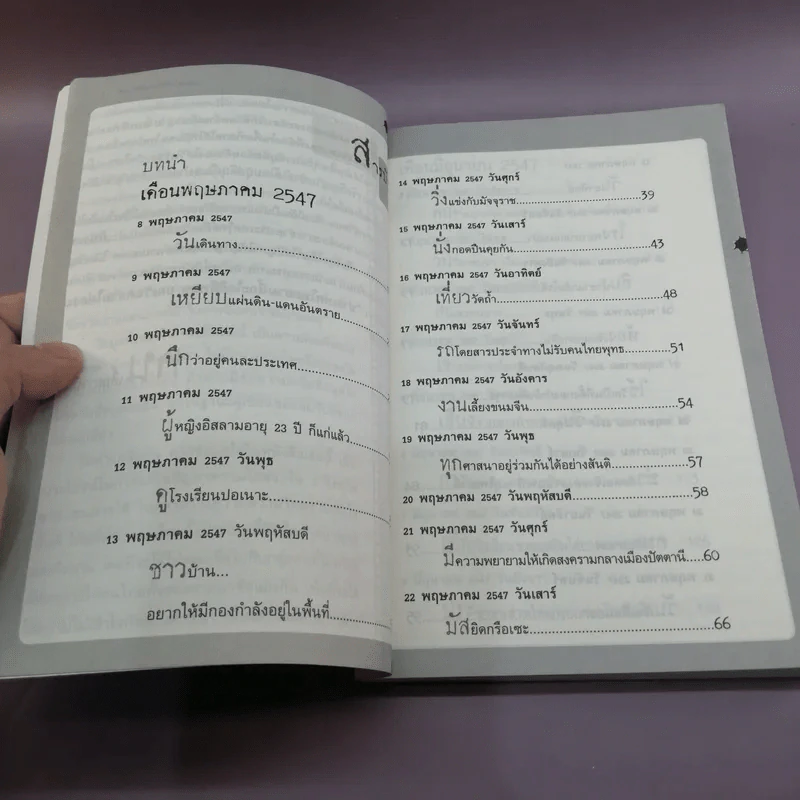 บทนำ
เดือนพฤษภาคม 2547
8 พฤษภาคม 2547
วันเดินทาง
9 พฤษภาคม 2547
เหยียบแผ่นดิน-แดนอันตราย
10 พฤษภาคม 2547
นึกว่าอยู่คนละประเทศ
11 พฤษภาคม 2547
ผู้หญิงอิสลามอายุ 23 ปี ก็แก่แล้ว
12 พฤษภาคม 2547 วันพุธ
ดูโรงเรียนปอเนาะ
13 พฤษภาคม 2547 วันพฤหัสบดี
ชาวบ้าน...
อยากให้มีกองกำลังอยู่ในพื้นที่
14 พฤษภาคม 2547 วันศุกร์
วิ่งแข่งกับมัจจุราช 39
15 พฤษภาคม 2547 วันเสาร์
นั่งกอดปืนคุยกัน 43
16 พฤษภาคม 2547 วันอาทิตย์
เที่ยวรัดถ้ำ 48
17 พฤษภาคม 2547 วันจันทร์
รถโดยสารประจำทางไม่รับคนไทยพุทธ 51
18 พฤษภาคม 2547 วันอังคาร
งานเลี้ยงขนมจีน 54
19 พฤษภาคม 2547 วันพุธ
ทุกศาสนาอยู่ร่วมกันได้อย่างสันติ 57
20 พฤษภาคม 2547 วันพฤหัสบดี 58
21 พฤษภาคม 2547 วันศุกร์
มีความพยายามให้เกิดสงครามกลางเมืองปัตตานี 60
22 พฤษภาคม 2547 วันเสาร์
มัสยิดกรือเซะ 66